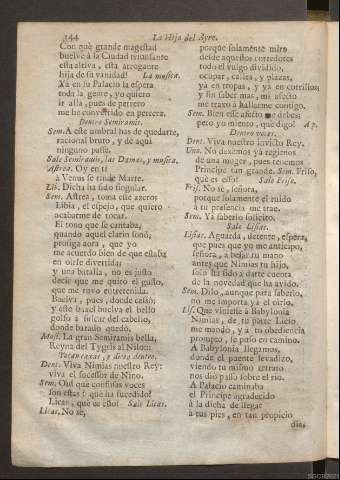 344
La Hija del Ayre.
Con què grande magestad
buelve à la Ciudad triunfante
esta altiva, esta arrogante
hija de su vanidad! La musica.
Ya en su Palacio la espera
toda la gente, yo quiero
ir allà, pues de perrero
me he convertido en perrera.
Dentro Semiramis.
Sem. A este umbral has de quedarte,
racional bruto, y de aqui
ninguno passe.
Sale Semiramis, las Damas, y musica.
Astrea. Oy en ti
à Venus se rinde Marte.
Lib. Dicha ha sido singular.
Sem. Astrea, toma este azero;
Libia, el espejo, que quiero
acabarme de tocar.
El tono que se cantaba,
quando aquel clarin sonó,
prosiga aora, que yo
me acuerdo bien de que estaba
en oirle divertida:
y una batalla, no es justo
decir que me quitó el gusto,
que me tuvo entretenida.
Buelva, pues, donde cessò;
y este buelva el bello
golfo à sulcar del cabello,
donde baraúo quedò.
Mus. La gran Semiramis bella,
Reyna del Tygris al Nilo:
Tocan caxas, y dicen dentro.
Dent. Viva Nimias nuestro Rey:
viva el sucessor de Nino.
Sem. Oid què confusas voces
son estas? què ha sucedido?
Licas, què es esto? Sale Licas.
Licas. No sè,
porque solamente miro
desde aquestos corredores
todo el vulgo dividido,
ocupar, calles, y plazas,
yà en tropas, y yà en corrillos;
y sin saber mas, mi afecto
me traxo à hallarme contigo.
Sem. Bien esse afecto me debes;
pero yo miento, que digo! Ap.
Dentro voces.
Den. Viva nuestro invicto Rey.
Uno. No dexemos yà regirnos
de una muger, pues tenemos
Principe tan grande. Sem. Friso,
què es esto? Sale Friso.
Fris. No sè, señora,
porque solamente el ruido
à tu presencia me trae.
Sem. Yà saberlo solicito.
Sale Lisias.
Lisias. Aguarda, detente, espera,
que pues que yo me anticipo,
señora, à besar tu mano
antes que Nimias tu hijo,
solo ha sido à darte cuenta
de la novedad que ha avido.
Sem. Dilo, aunque para saberlo,
no me importa yà el oirlo.
Lis. Que viniesse à Babylonia
Nimias, de tu parte Licio
me mandò, y à tu obediencia
prompto, le puso en camino.
A Babylonia llegamos,
donde el puente levadizo,
viendo tu mismo retrato
nos diò passo sobre el rio.
A Palacio caminaba
el Principe agradecido
à la dicha de llegar
à tus pies, en tan propicio
dia,